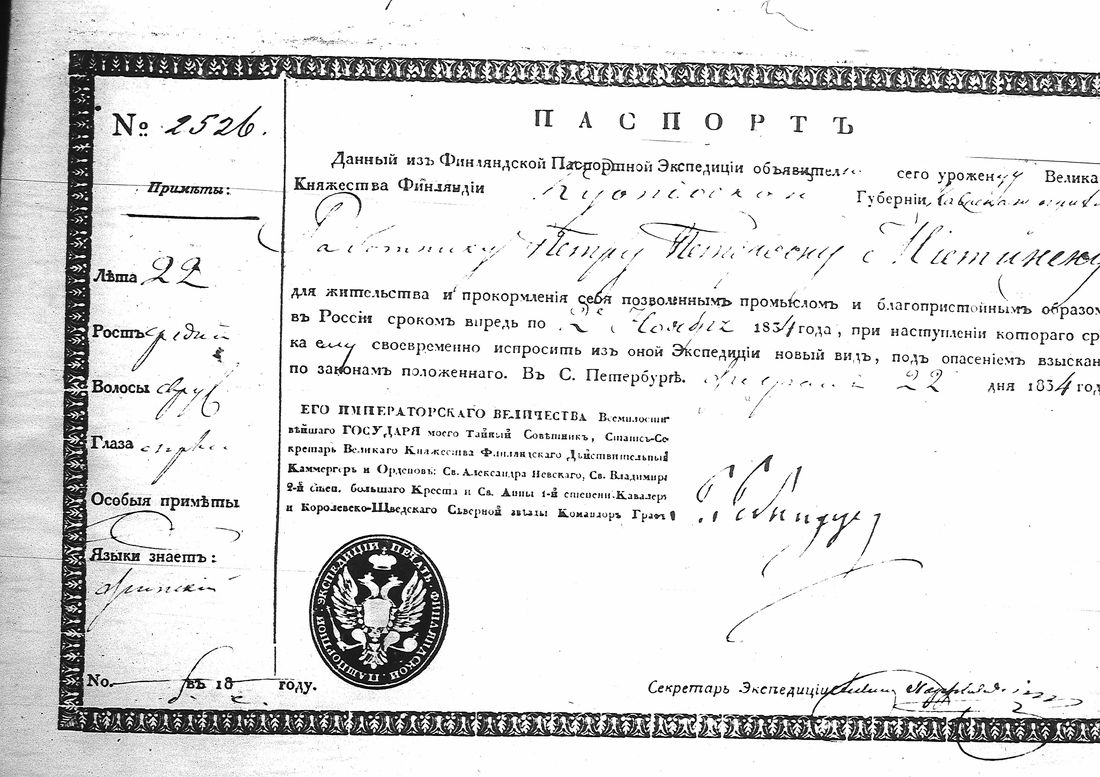 № 2526.
Примѣты:
Лѣта 22
Ростъ средній
Волосы
Глаза
Особыя примѣты
Языки знаетъ:
финскій
No. въ 18 году.
ПАСПОРТЪ
Данный изъ Финляндской Паспортной Экспедиціи объявителю сего уроженцу Велика
Княжества Финляндіи Куопіоской Губерніи
Работнику Петру Петерсону
для жительства и прокормленія себя позволеннымъ промысломъ и благопристойнымъ образом
въ Россіи срокомъ впредь по 22е Ноября 1834 года, при наступленіи котораго ср
ка ему своевременно испросить изъ оной Экспедиціи новый видъ, подъ опасеніемъ взыскан
по законамъ положеннаго. Въ С. Петербургѣ. 22 дня 1834 год
ЕГО ИМПЕРАТОРСКАГО ВЕЛИЧЕСТВА Всемилости
вѣйшаго ГОСУДАРЯ моего Тайный Совѣтникъ, Статсъ-Се
кретарь Великаго Княжества Финляндскаго Дѣйствительный
Каммергеръ и Орденовъ: Св. Александра Невскаго, Св. Владимира
2-й степ. большаго Креста и Св. Анны 1-й степени Кавалеръ
и Королевско-Шведскаго Сѣверной звѣзды Командоръ Графъ
Г. Ребиндеръ
ПЕЧАТЬ ФИНЛЯНДСКОЙ ПАШПОРТНОЙ ЭКСПЕДИЦІИ
Секретарь Экспедиціи